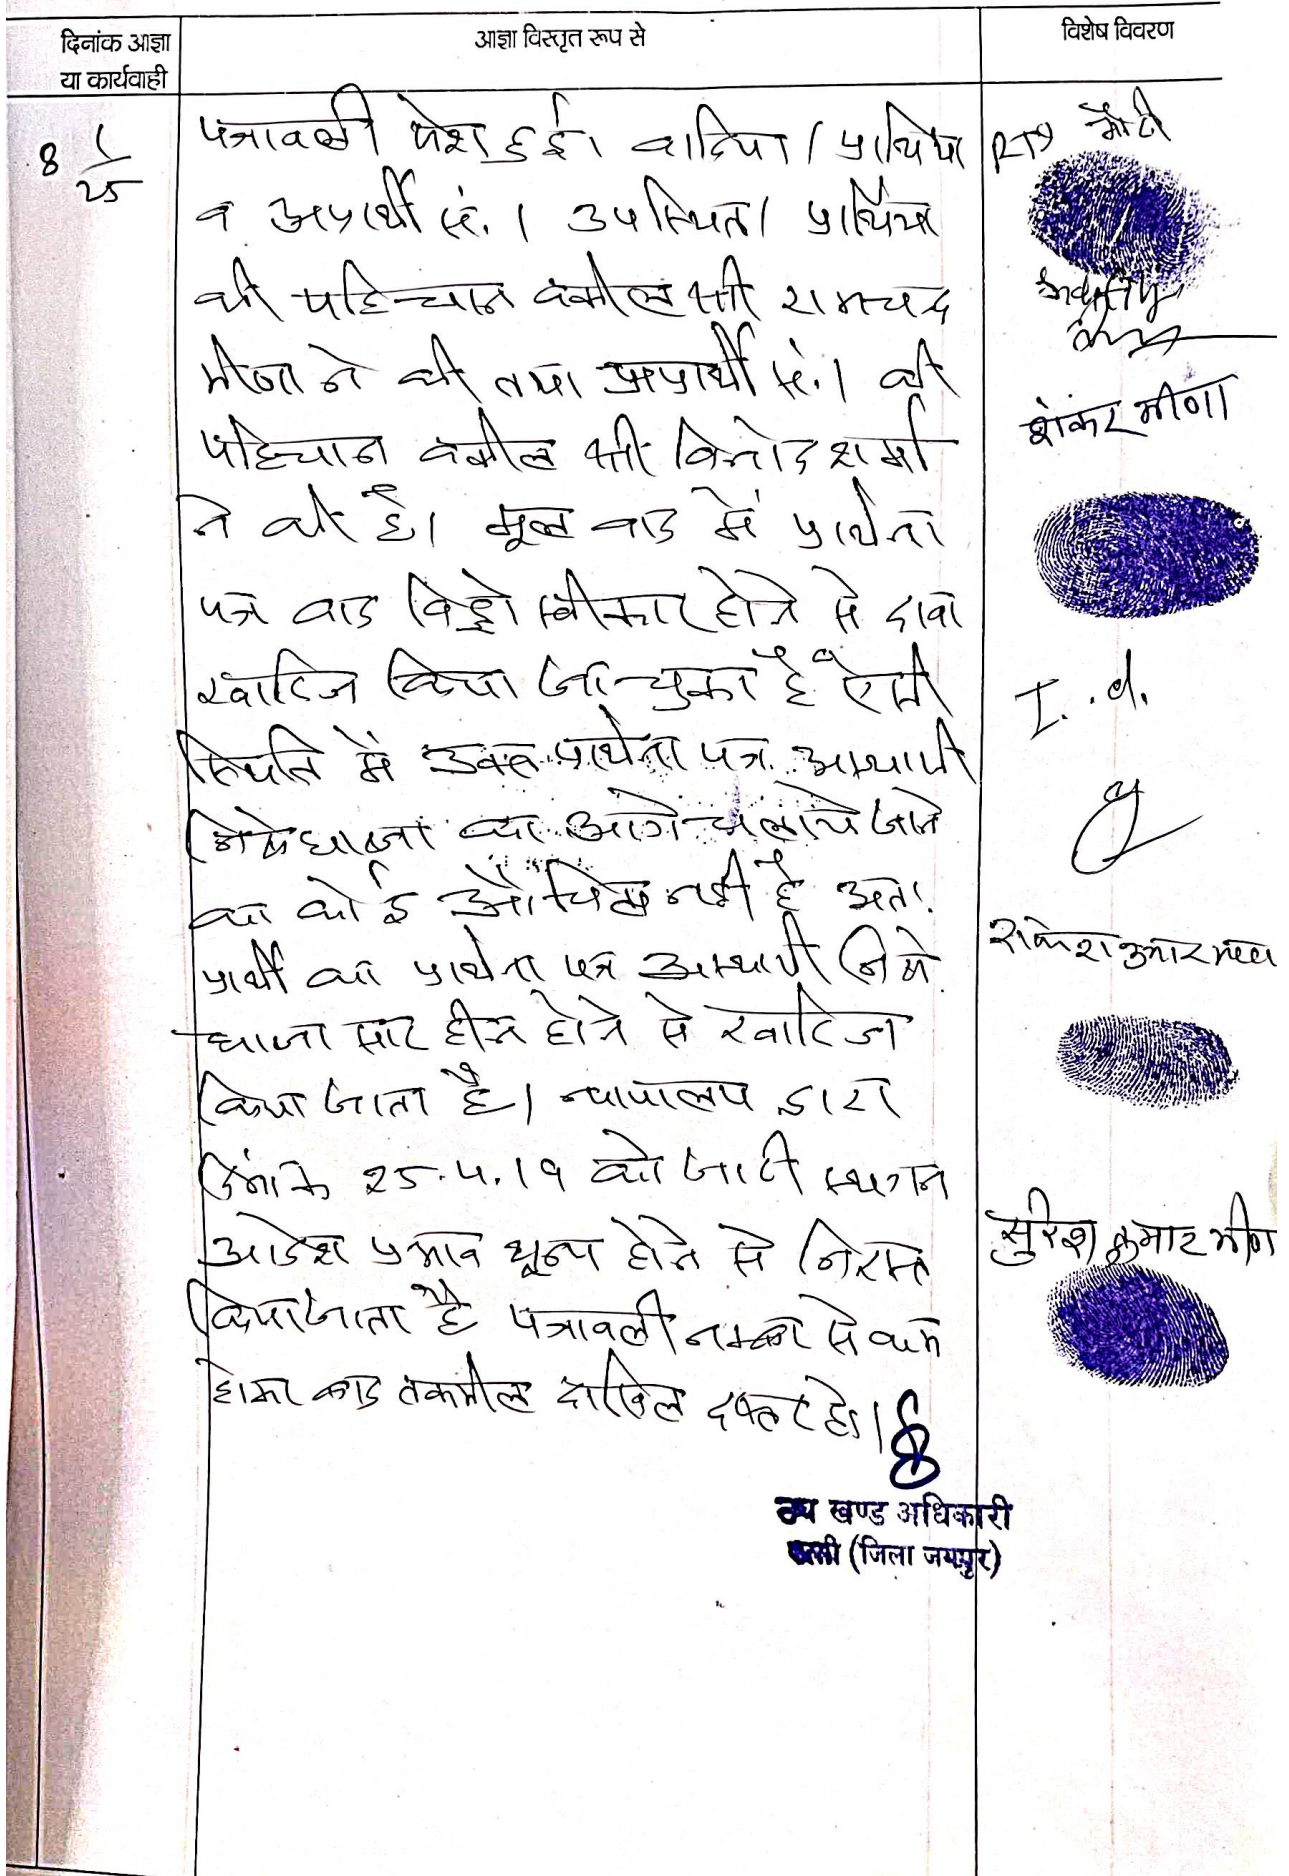 दिनांक आज्ञा
या कार्यवाही
आज्ञा विस्तृत रूप से
विशेष विवरण
8 1/25
पत्रावली पेश हुई। वादिया / प्रार्थिया
व अप्रार्थी सं. 1 उपस्थित। प्रार्थिया
की पहिचान वकील श्री रामचन्द्र
मीणा ने की तथा अप्रार्थी सं. 1 की
पहिचान वकील श्री विनोद शर्मा
ने की है। मूल वाद में प्रार्थना
पत्र वाद विड्रो स्वीकार होने से दावा
खारिज किया जा चुका है ऐसी
स्थिति में उक्त प्रार्थना पत्र अस्थायी
निषेधाज्ञा का आगे चलाये जाने
का कोई औचित्य नहीं है अतः
प्रार्थी का प्रार्थना पत्र अस्थायी निषे
धाज्ञा सार हीन होने से खारिज
किया जाता है। न्यायालय द्वारा
दिनांक 25.4.19 को जारी स्थगन
आदेश प्रभाव शून्य होने से निरस्त
किया जाता है पत्रावली नम्बर से कम
होकर बाद तकमील दाखिल दफ्तर हो।
उप खण्ड अधिकारी
बस्सी (जिला जयपुर)
RTI
शंकर मीणा
I. d.
राकेश कुमार
सुरेश कुमार मीणा